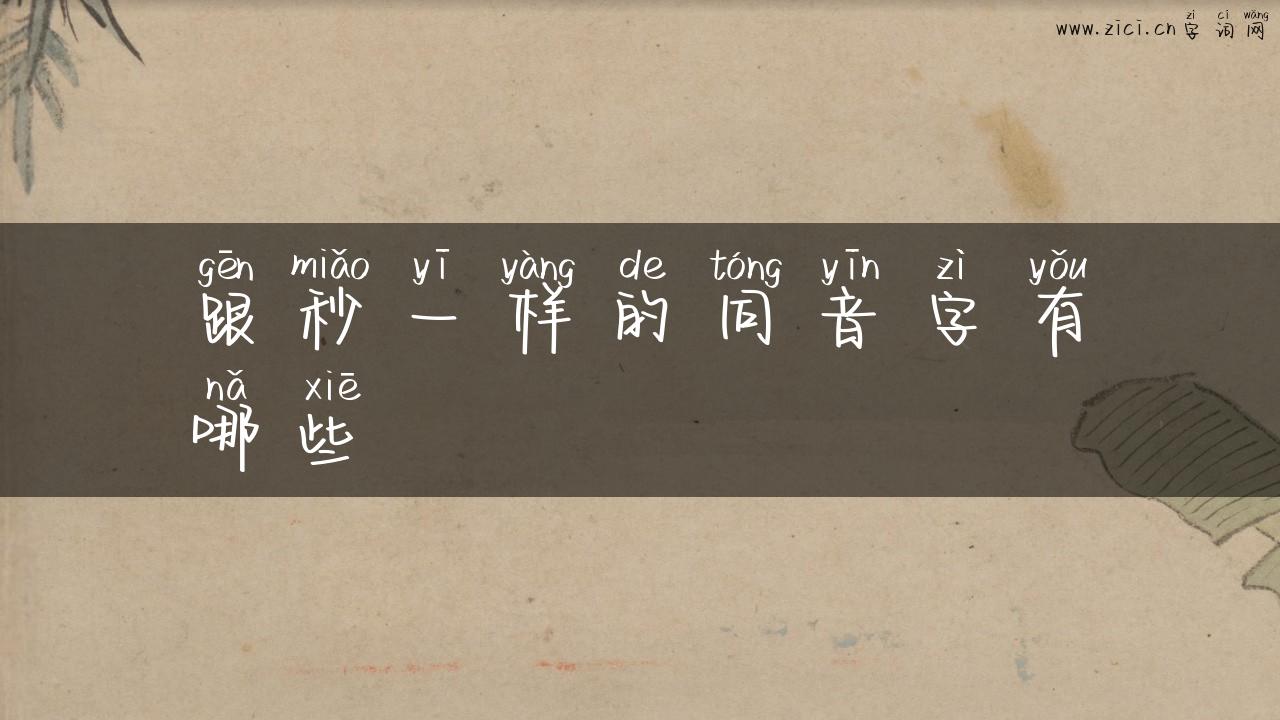 zì cí wǎng
www.zici.cn 字词网
gēn miǎo yī yàng de tóng yīn zì yǒu
跟秒一样的同音字有
nǎ xiē
哪些